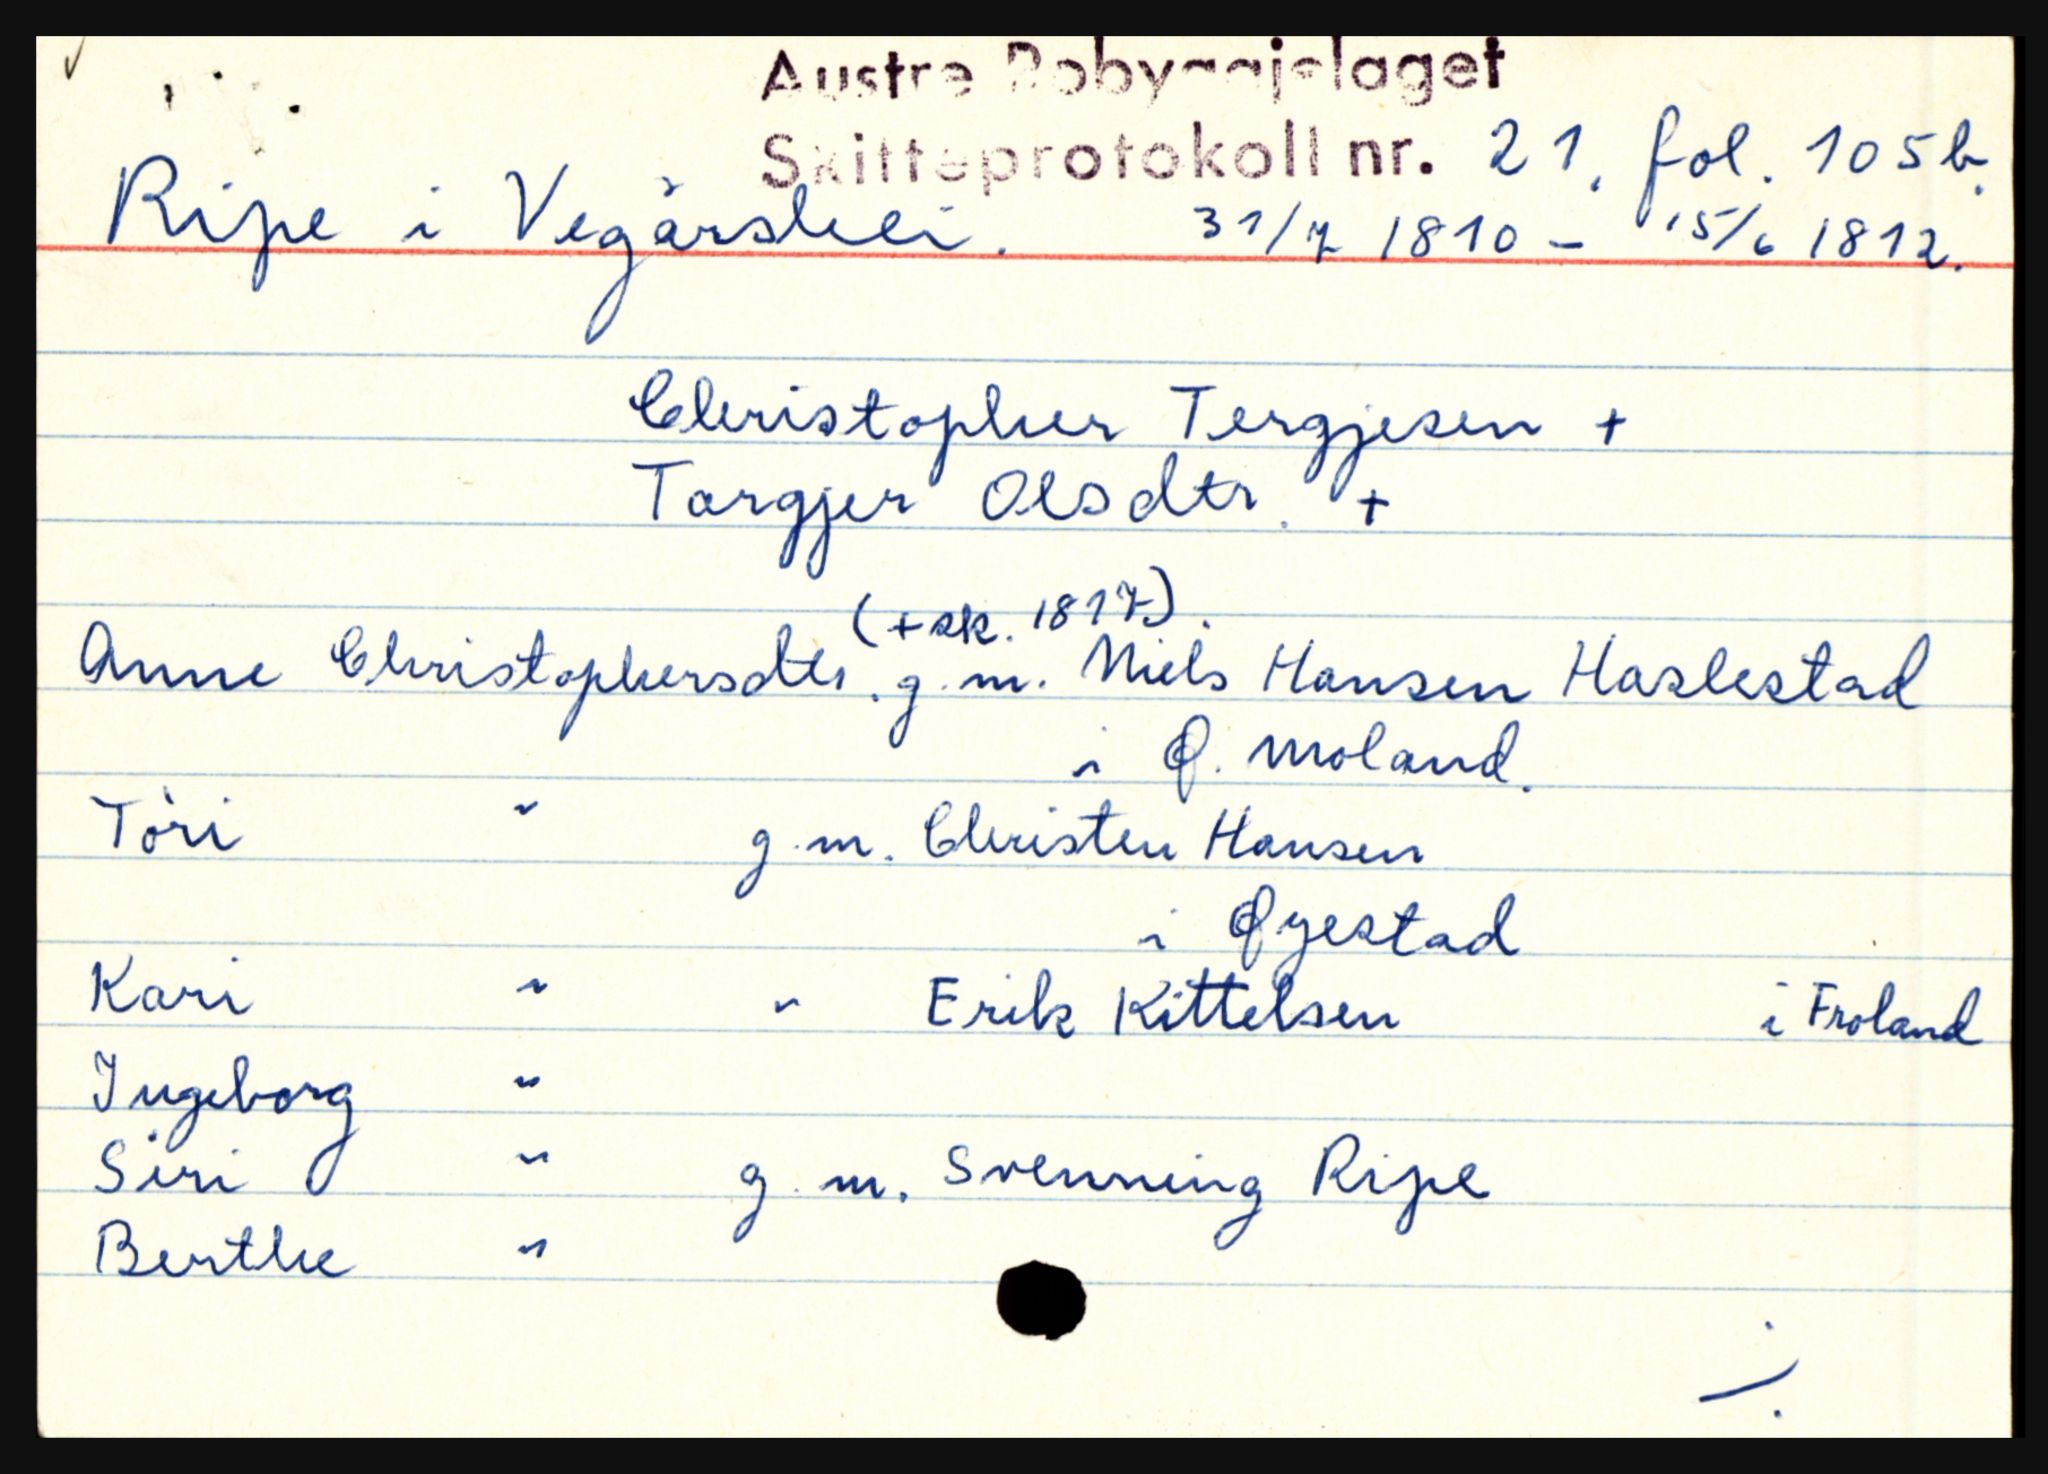 Austre Robyggjelaget
Skifteprotokoll nr. 21. fol. 105b.
Ripe i Vegårshei. 31/7 1810 – 15/6 1812.
Christopher Tergjesen +
Torgjer Olsdtr. +
(+ sk. 1817).
Anne Christophersdtr. g.m. Niels Hansen Haslestad
i Ø. Moland.
Tøri " g.m. Christen Hansen
i Øyestad
Kari " " Erik Kittelsen i Froland
Ingeborg "
Siri " g.m. Svenning Ripe
Berthe "